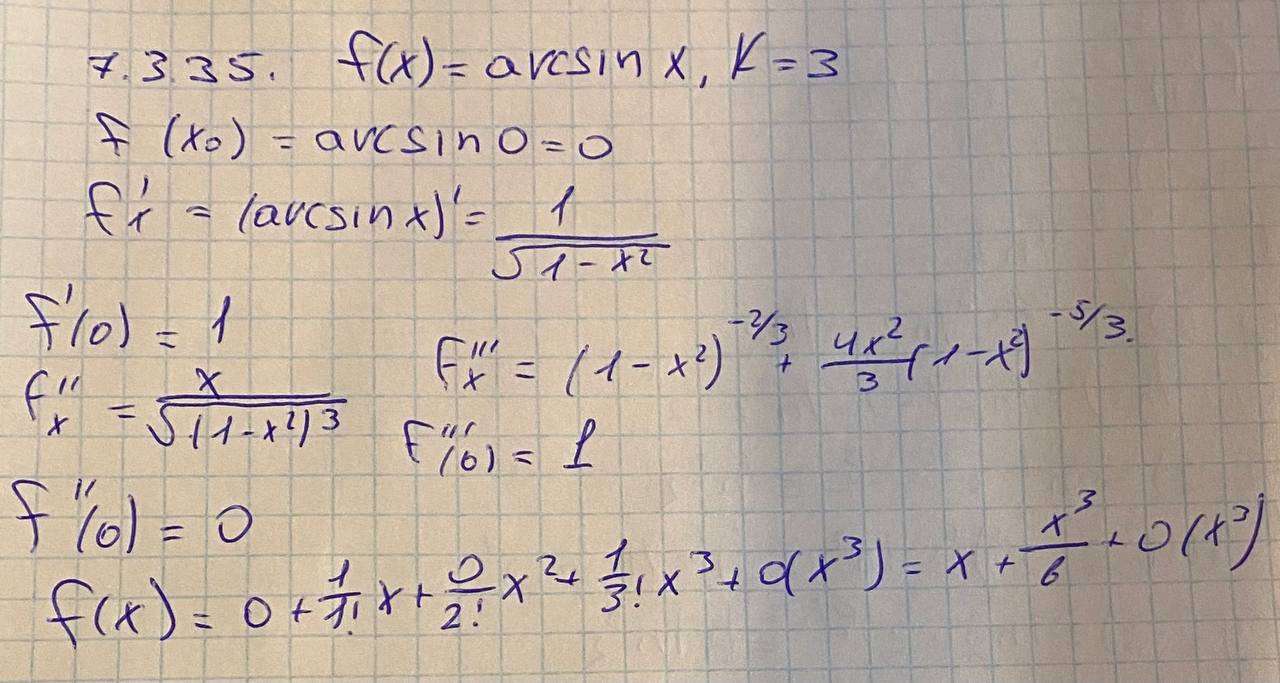 7.3.35. f(x) = arcsin x, K = 3
f (x₀) = arcsin 0 = 0
f'ₓ = (arcsin x)' = 1/√(1-x²)
f'(0) = 1
f''ₓ = x/√((1-x²)³)
f'''ₓ = (1-x²)^(-2/3) + 4x²/3 (1-x²)^(-5/3).
f'''(0) = 1
f''(0) = 0
f(x) = 0 + 1/1! x + 0/2! x² + 1/3! x³ + o(x³) = x + x³/6 + o(x³)